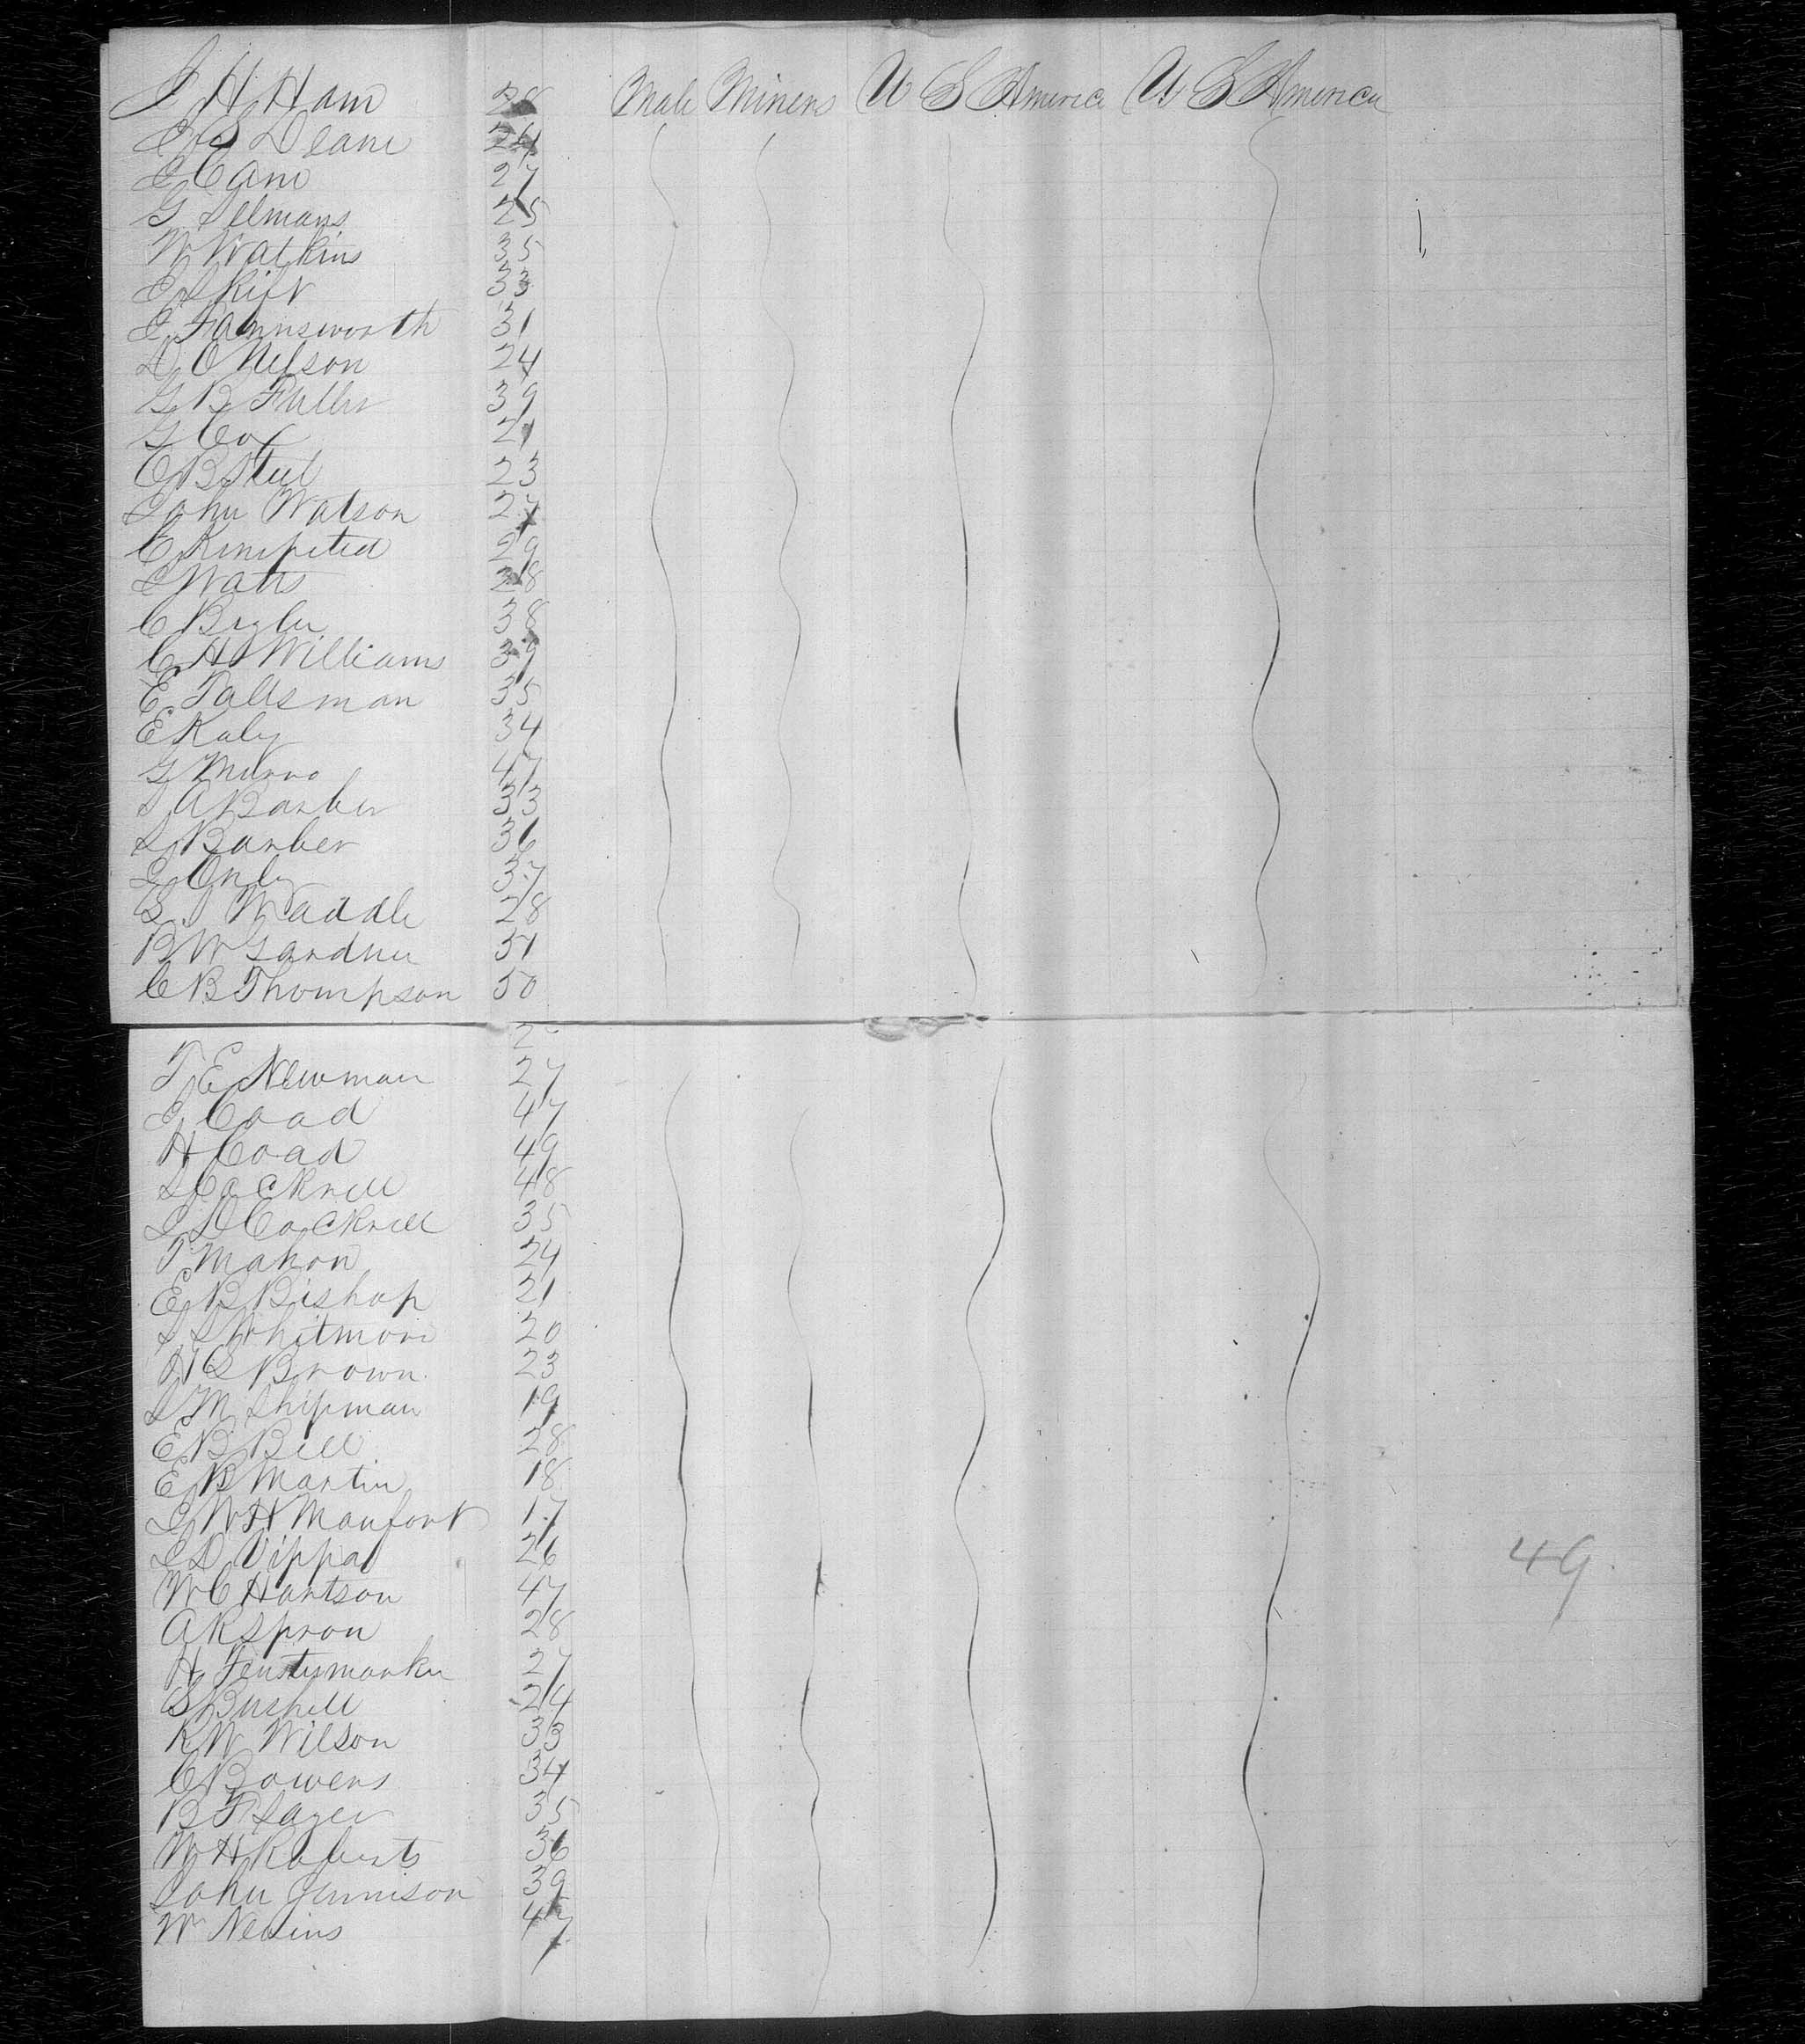 J H Ham 28 Male Miners U S America U S America
J S Deane 24
J Cane 27
G Selmans 25
W Watkins 35
J Skift 33
J Farnnsworth 31
D O Nelson 24
G B Fuller 39
G Cox 21
C B Steel 23
John Watson 27
C Kimpeted 29
J Watts 28
C Bigler 38
C H Williams 39
E Tallsman 35
E Kaly 34
G Munro 47
S A Barber 33
S Barber 36
J Only 37
S J Waddle 28
B W Gardner 51
C B Thompson 50
T E Newman 27
J Coad 47
H Coad 49
S Cockrell 48
J D Cockrell 35
T Mahon 24
E B Bishop 21
S S Whitmore 20
H S Brown 23
S M Shipman 19
E B Bell 28
E B Martin 18
J W H Maufort 17
J D Vippa 26
W C Hartson 47
49
A R Spron 28
H 27
S Bushell 24
R W Wilson 33
C Bowens 34
B F Sager 35
W H Roberts 36
John Jennison 39
W Nevins 47